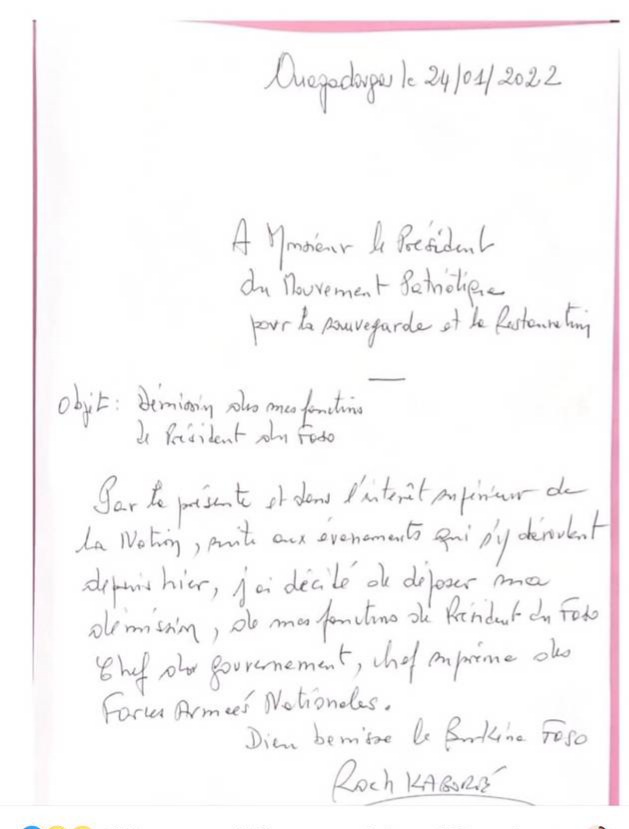 Ouagadougou le 24/01/2022
A Monsieur le Président
du Mouvement Patriotique
pour la sauvegarde et la Restauration
Objet: Démission de mes fonctions
de Président du Faso
Par la présente et dans l'intérêt supérieur de
la Nation, suite aux évenements qui s'y déroulent
depuis hier, j'ai décidé de déposer ma
démission, de mes fonctions de Président du Faso
Chef du gouvernement, chef suprême des
Forces Armées Nationales.
Dieu benisse le Burkina Faso
Roch KABORÉ